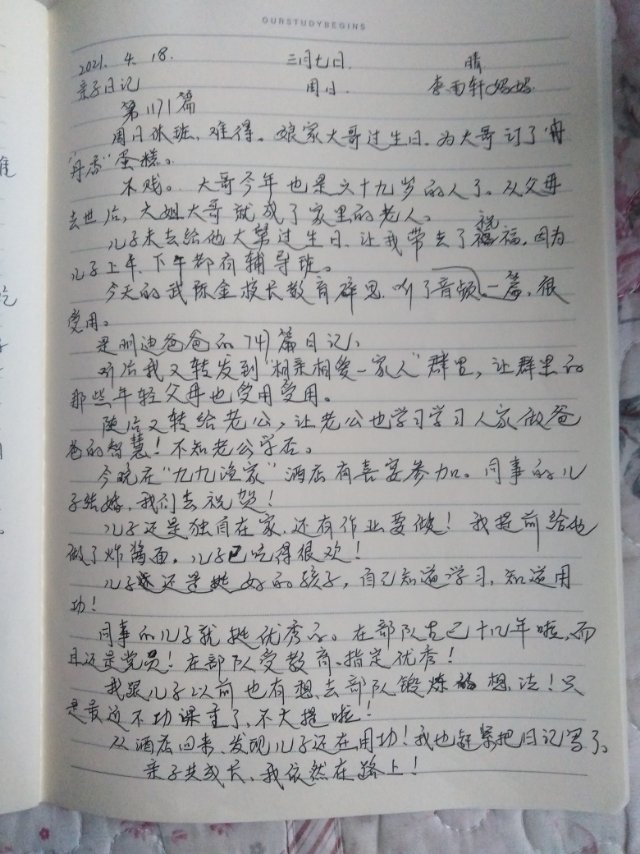 OURSTUDYBEGINS
2021. 4. 18. 三月七日. 晴
亲子日记 周日. 李雨轩妈妈
第1171篇
周日休班、难得。娘家大哥过生日、为大哥订了"丹
丹香"蛋糕。
不贱。大哥今年也是六十九岁的人了。从父母
去世后,大姐大哥就成了家里的老人。
儿子未去给他大舅过生日、让我带去了祝福,因为
儿子上午、下午都有辅导班。
今天的我 金校长教育 听了音频一篇,很
受用。
是明迪爸爸的741篇日记、
听后我又转发到"相亲相爱一家人"群里,让群里的
那些年轻父母也受用受用。
随后又转给老公,让老公也学习学习人家做爸
爸的智慧!不知老公学否。
今晚在"九九渔家"酒店有喜宴参加。同事的儿
子结婚,我们去祝贺!
儿子还是独自在家、还有作业要做!我提前给他
做了炸酱面,儿子已吃得很欢!
儿子还是挺好的孩子,自己知道学习,知道用
功!
同事的儿子就挺优秀的。在部队去已十几年啦,而
且还是党员!在部队受教育、指定优秀!
我跟儿子以前也有想去部队锻炼的想法!只
是最近不功课重了、不大提啦!
从酒店回来、发现儿子还在用功!我也赶紧把日记写了。
亲子共成长、我依然在路上!